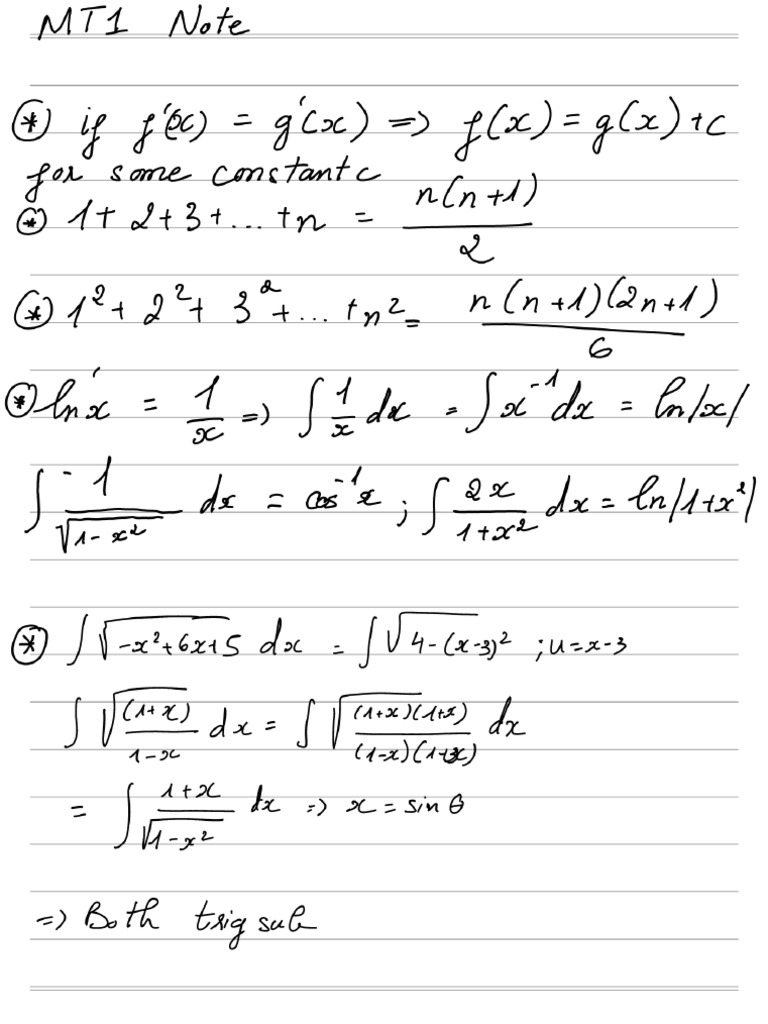 MT1 Note
⊛ if f'(x) = g'(x) => f(x) = g(x) + c
for some constant c
⊛ 1 + 2 + 3 + ... + n = n(n+1)/2
⊛ 1² + 2² + 3² + ... + n² = n(n+1)(2n+1)/6
⊛ ln'x = 1/x => ∫ 1/x dx = ∫ x⁻¹ dx = ln|x|
∫ -1/√(1-x²) dx = cos⁻¹x ; ∫ 2x/(1+x²) dx = ln|1+x²|
⊛ ∫ √(-x²+6x+5) dx = ∫ √(4-(x-3)²) ; u = x-3
∫ √((1+x)/(1-x)) dx = ∫ √((1+x)(1+x)/(1-x)(1+x)) dx
= ∫ (1+x)/√(1-x²) dx => x = sin θ
=> Both trig sub